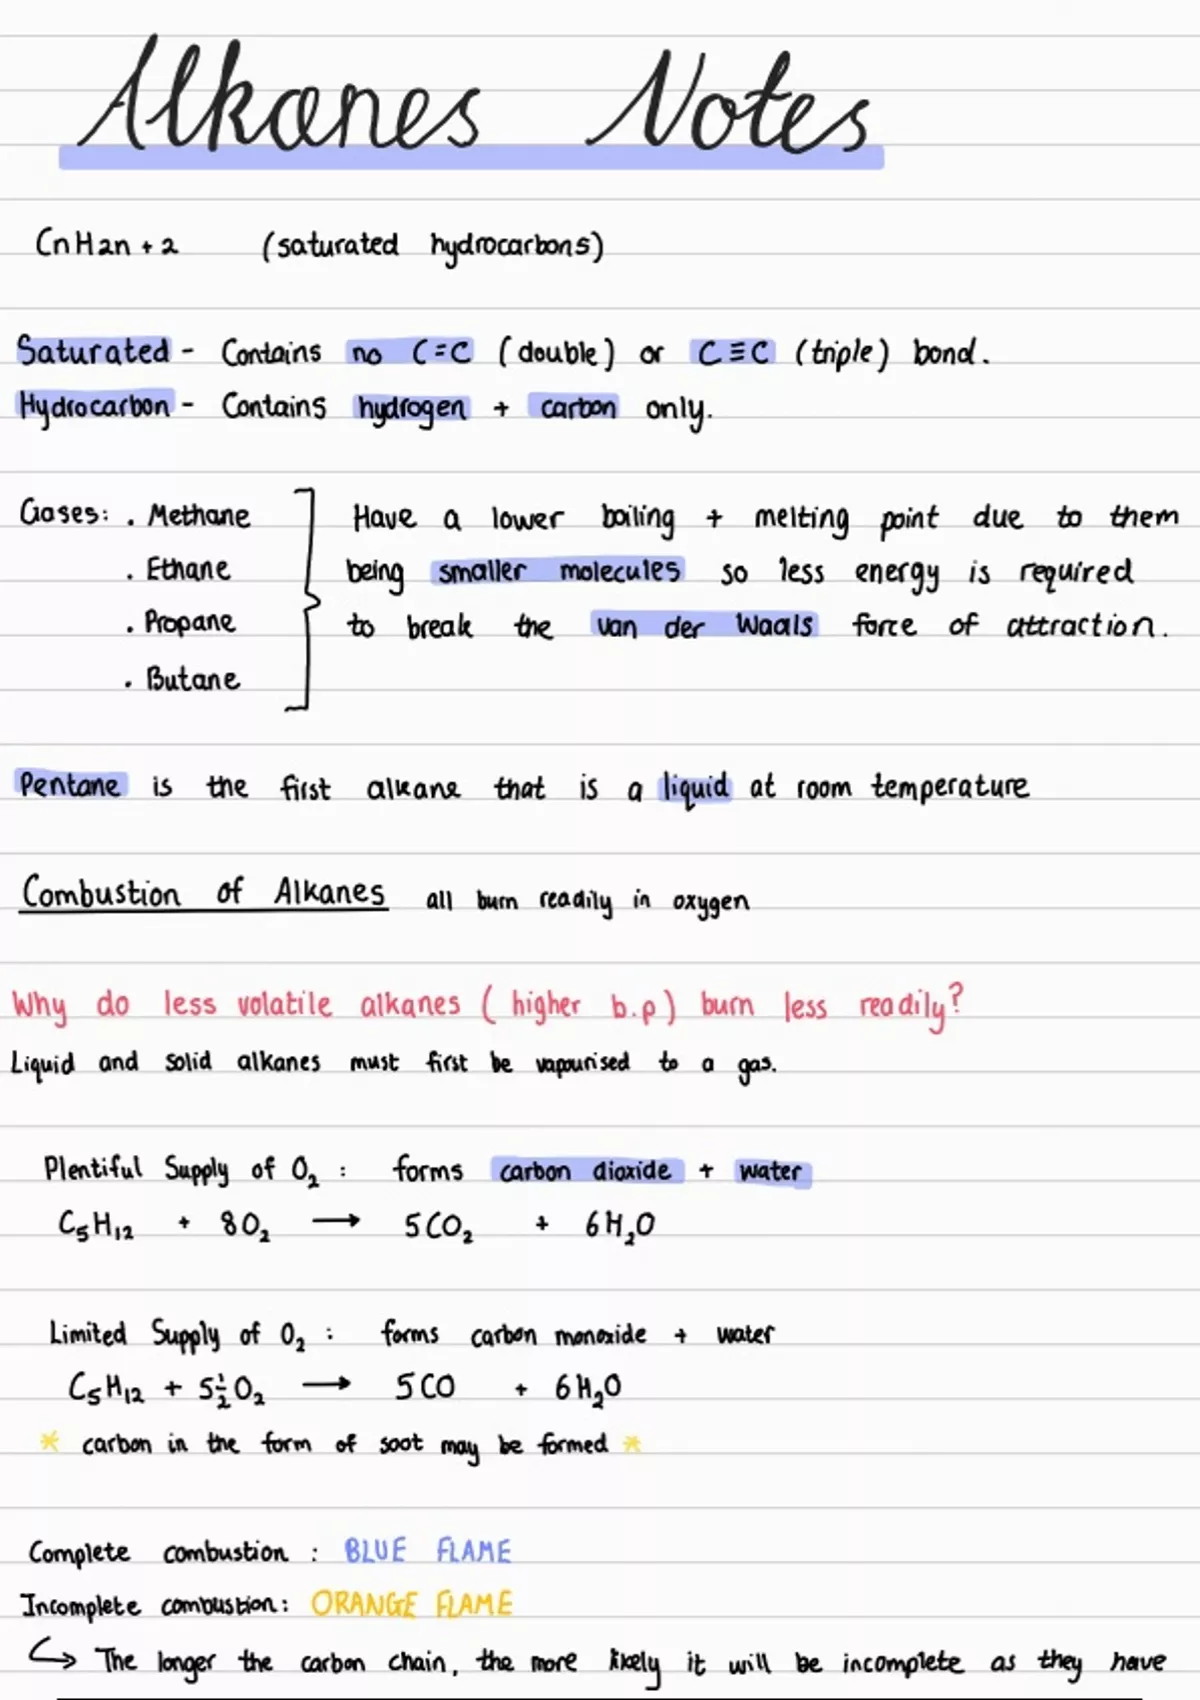 Alkanes Notes
CnH2n+2 (saturated hydrocarbons)
Saturated - Contains no C=C (double) or C≡C (triple) bond.
Hydrocarbon - Contains hydrogen + carbon only.
Gases: . Methane
. Ethane
. Propane
. Butane
Have a lower boiling + melting point due to them
being smaller molecules so less energy is required
to break the van der Waals force of attraction.
Pentane is the first alkane that is a liquid at room temperature
Combustion of Alkanes all burn readily in oxygen
Why do less volatile alkanes (higher b.p) burn less readily?
Liquid and solid alkanes must first be vapourised to a gas.
Plentiful Supply of O₂ : forms carbon dioxide + water
C₅H₁₂ + 8O₂ → 5CO₂ + 6H₂O
Limited Supply of O₂ : forms carbon monoxide + water
C₅H₁₂ + 5½O₂ → 5CO + 6H₂O
* carbon in the form of soot may be formed *
Complete combustion : BLUE FLAME
Incomplete combustion: ORANGE FLAME
↪ The longer the carbon chain, the more likely it will be incomplete as they have